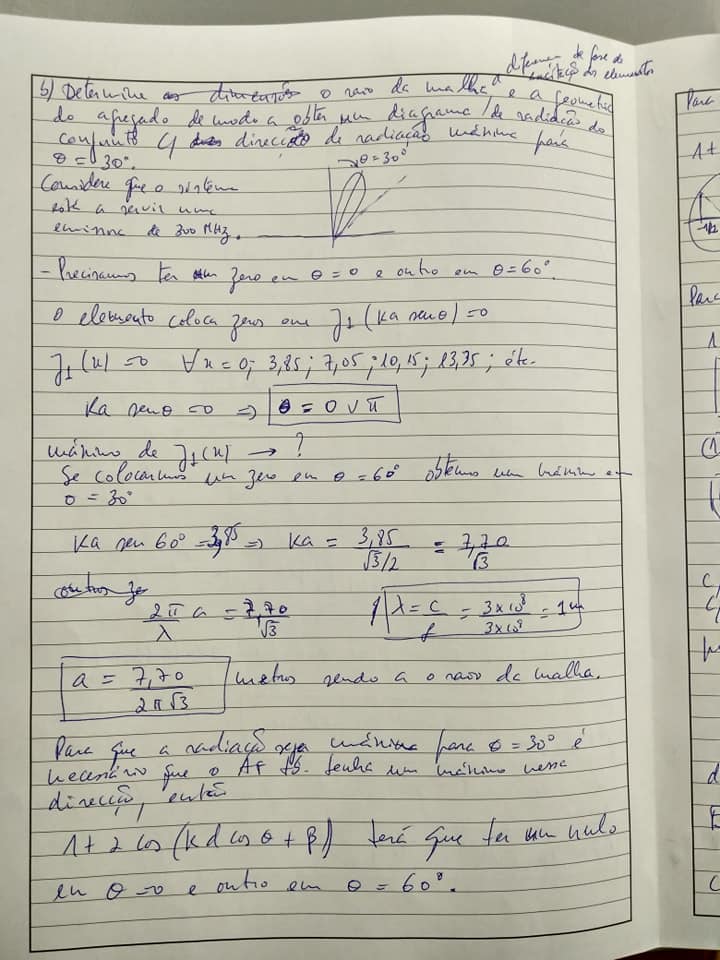 diferença de fase de
excitação dos elementos
b) Determine as dimensões o raio da malha e a geometria
do agregado de modo a obter um diagrama de radiação do
conjunto c/ direcção de radiação máxima para
θ = 30°.
θ = 30°
Considere que o sistema
está a servir uma
emissora de 300 MHz.
- Precisamos ter um zero em θ = 0 e outro em θ = 60°.
O elemento coloca zeros em J1 (Ka senθ) = 0
J1 (x) = 0 ∀x = 0; 3,85; 7,05; 10,15; 13,35; etc.
Ka senθ = 0 => θ = 0 ∨ π
máximo de J1(x) → ?
Se colocarmos um zero em θ = 60° obtemos um máximo em
θ = 30°
Ka sen 60° = 3,85 => Ka = 3,85 / √3/2 = 7,70 / √3
outros ze
2π/λ a = 7,70/√3 λ = c/f = 3x10⁸ / 3x10⁸ = 1m
a = 7,70 / 2π√3 metros sendo a o raio da malha.
Para que a radiação seja máxima para θ = 30° é
necessário que o AF tb. tenha um máximo nessa
direcção, então
1 + 2 cos (Kd cos θ + β) terá que ter um nulo
em θ = 0 e outro em θ = 60°.
Para
1+
-1/2
Para
1
(1
C/
C/
d
E
C